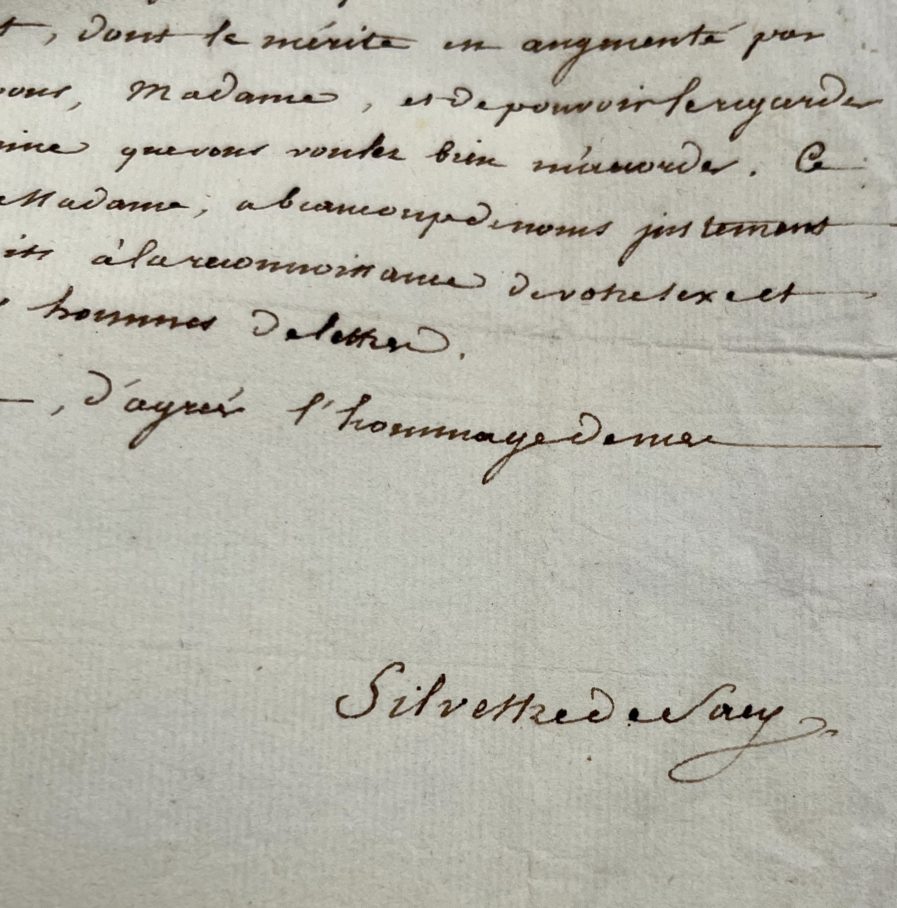 t, dont le mérite est augmenté par
vous, Madame, et de pouvoir le regarder
que vous voulez bien m'accorder. Ce
Madame, a beaucoup de noms justement
à la reconnoissance de votre sexe et
hommes de lettres.
, d'agréer l'hommage de mes
Silvestre de Sacy